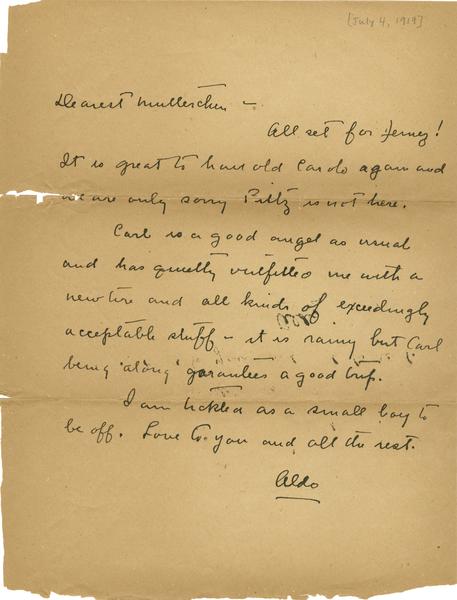 [July 4, 1919]
Dearest Mutterchen –
All set for Jemez!
It is great to have old Carlo again and
we are only sorry Fritz is not here.
Carl is a good angel as usual
and has quietly outfitted me with a
new tire and all kinds of exceedingly
acceptable stuff – it is rainy but Carl
being "along" garantees a good trip.
I am tickled as a small boy to
be off. Love to you and all the rest.
Aldo